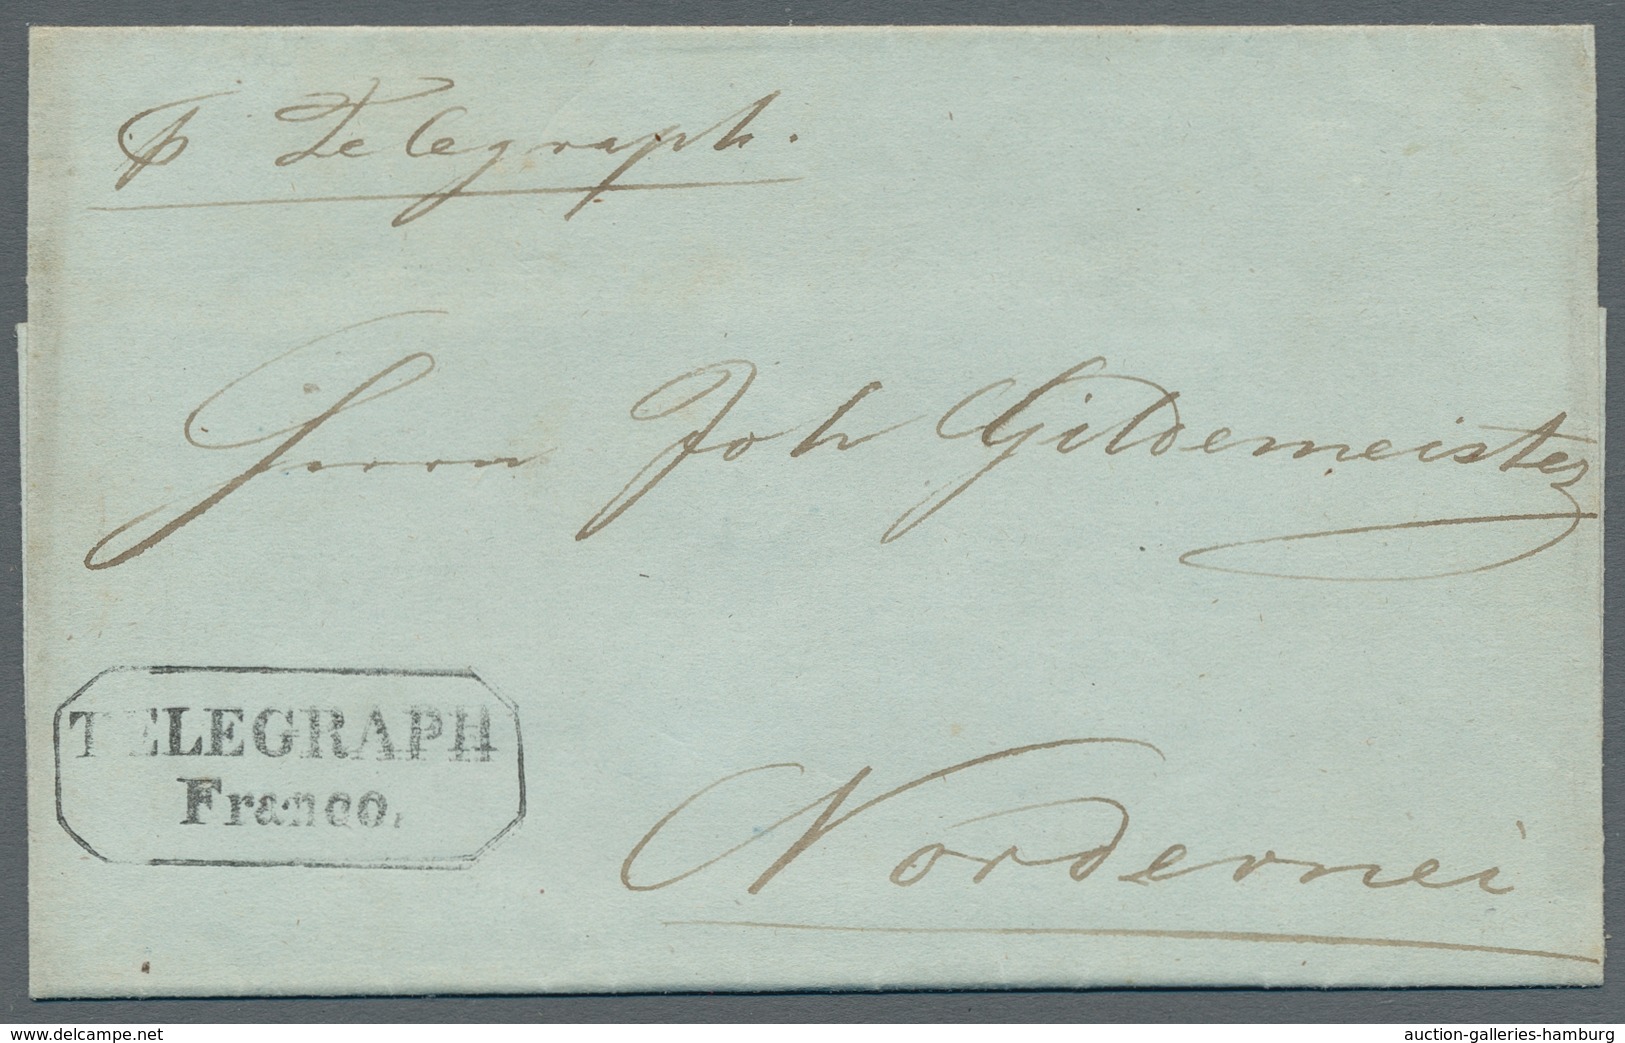 p Telegraph.
Herrn Joh Gildemeister
TELEGRAPH
Franco.
Nordernei
www.delcampe.net
auction-galleries-hamburg